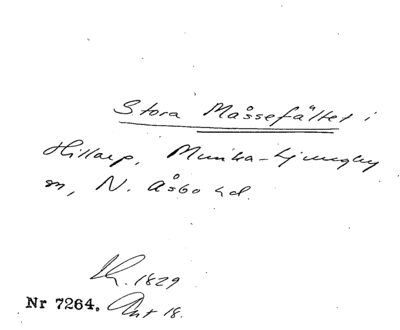 Stora Måssefältet i
Hillarp, Munka-Ljungby
sn, N. Åsbo hd.
1829
Nr 7264. Ant 18.